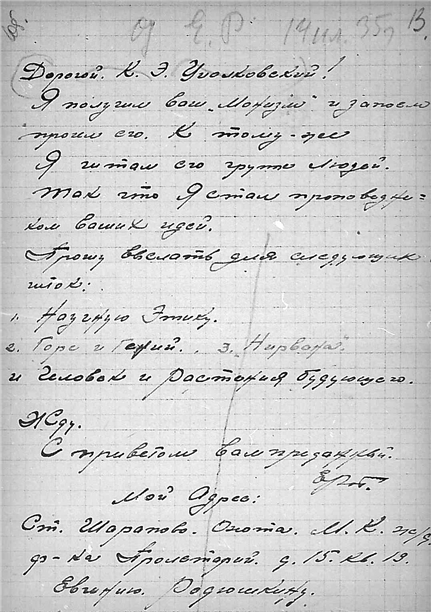 от Е. Р 19 ил. 35г 13.
Дорогой. К. Э. Циолковский!
Я получил ваш „Монизм" и запоем
прочел его. К тому-же
Я читал его группе людей.
Так что Я стал проповедни=
ком ваших идей.
Прошу выслать для следующих
читок:
1. Научную Этику.
2. Горе и Гений. , 3. „Нирвана".
и Человек и Растения будующего.
Жду.
С приветом вам преданный.
Мой Адрес:
Ст. Шарапово. Охота. М. К. ж/д.
ф-ка Пролетарий. д. 15. кв. 19.
Евгению. Родюшкину.